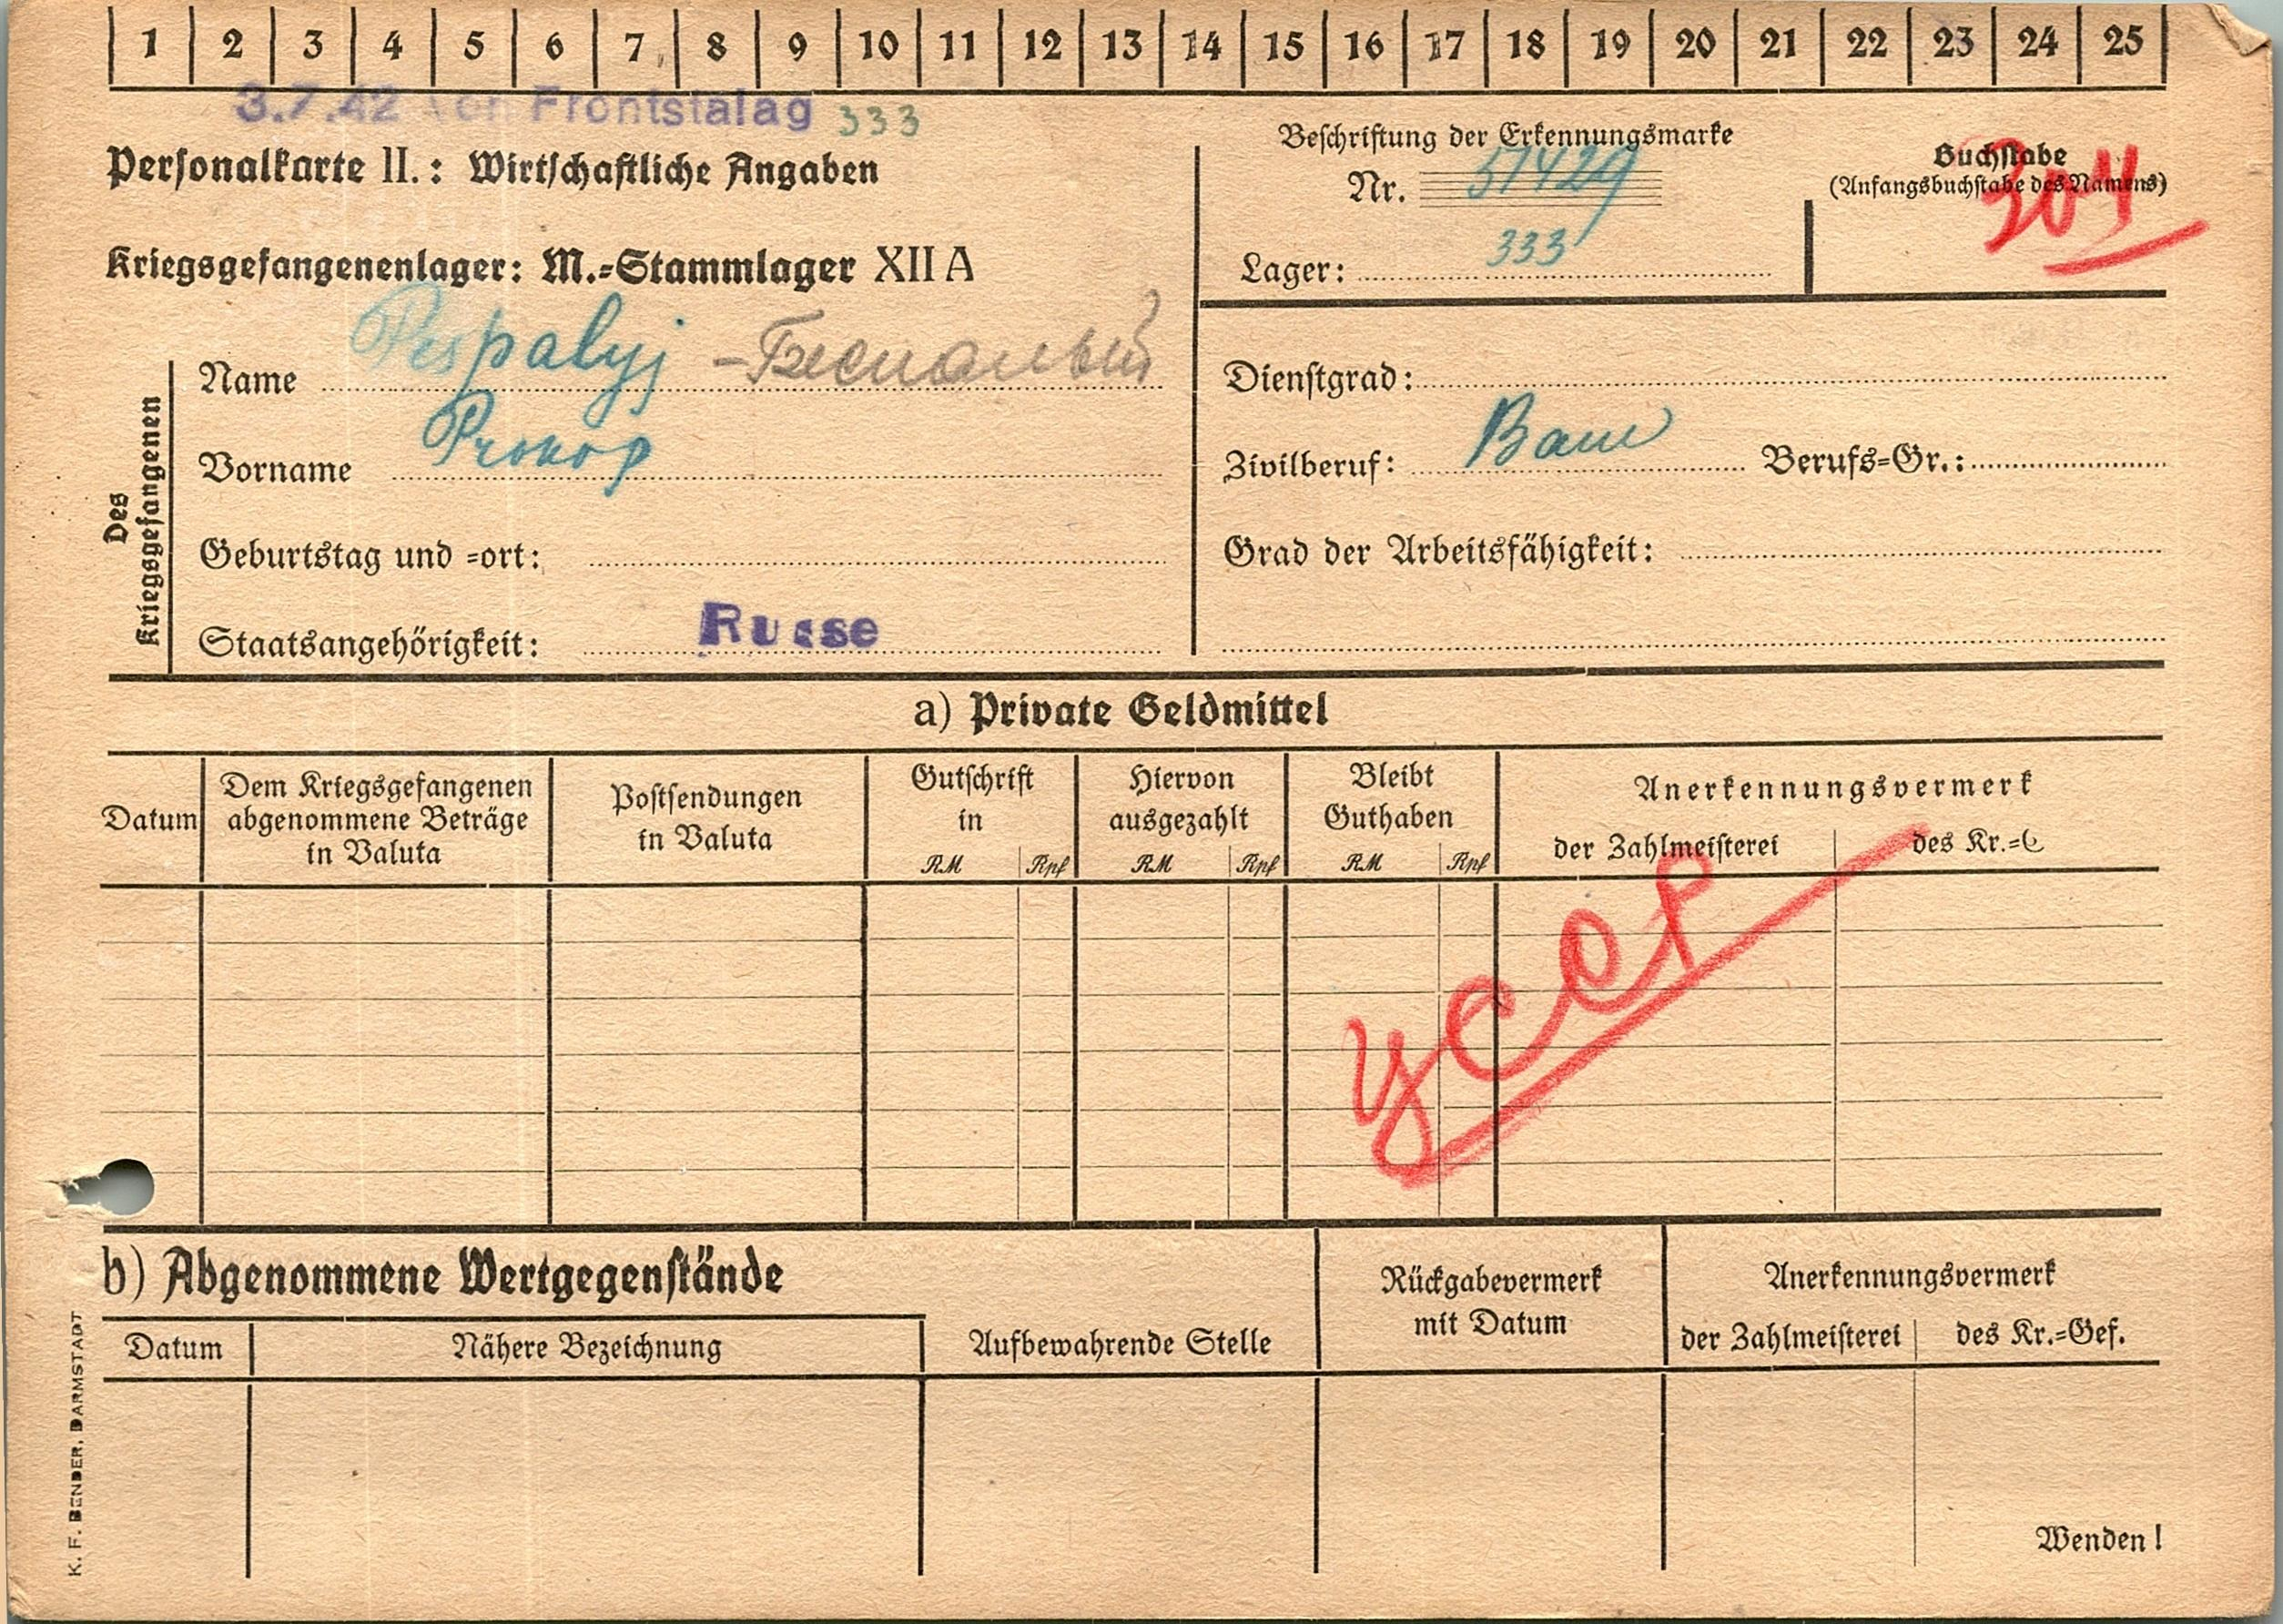 1 2 3 4 5 6 7 8 9 10 11 12 13 14 15 16 17 18 19 20 21 22 23 24 25
3.7.42 von Frontstalag 333
Personalkarte II.: Wirtschaftliche Angaben
Beschriftung der Erkennungsmarke
Nr. 51429
Lager: 333
Buchstabe
(Anfangsbuchstabe des Namens)
304
Kriegsgefangenenlager: M.-Stammlager XII A
Des Kriegsgefangenen
Name Pespalyj - Беспалый
Vorname Prokop
Geburtstag und =ort:
Staatsangehörigkeit: Russe
Dienstgrad:
Zivilberuf: Bauer Berufs=Gr.:
Grad der Arbeitsfähigkeit:
a) Private Geldmittel
Datum
Dem Kriegsgefangenen
abgenommene Beträge
in Valuta
Postsendungen
in Valuta
Gutschrift
in
RM Rpf
Hiervon
ausgezahlt
RM Rpf
Bleibt
Guthaben
RM Rpf
Anerkennungsvermerk
der Zahlmeisterei des Kr.=G
УССР
b) Abgenommene Wertgegenstände
Datum
Nähere Bezeichnung
Aufbewahrende Stelle
Rückgabevermerk
mit Datum
Anerkennungsvermerk
der Zahlmeisterei des Kr.=Gef.
Wenden!
K. F. BENDER, DARMSTADT